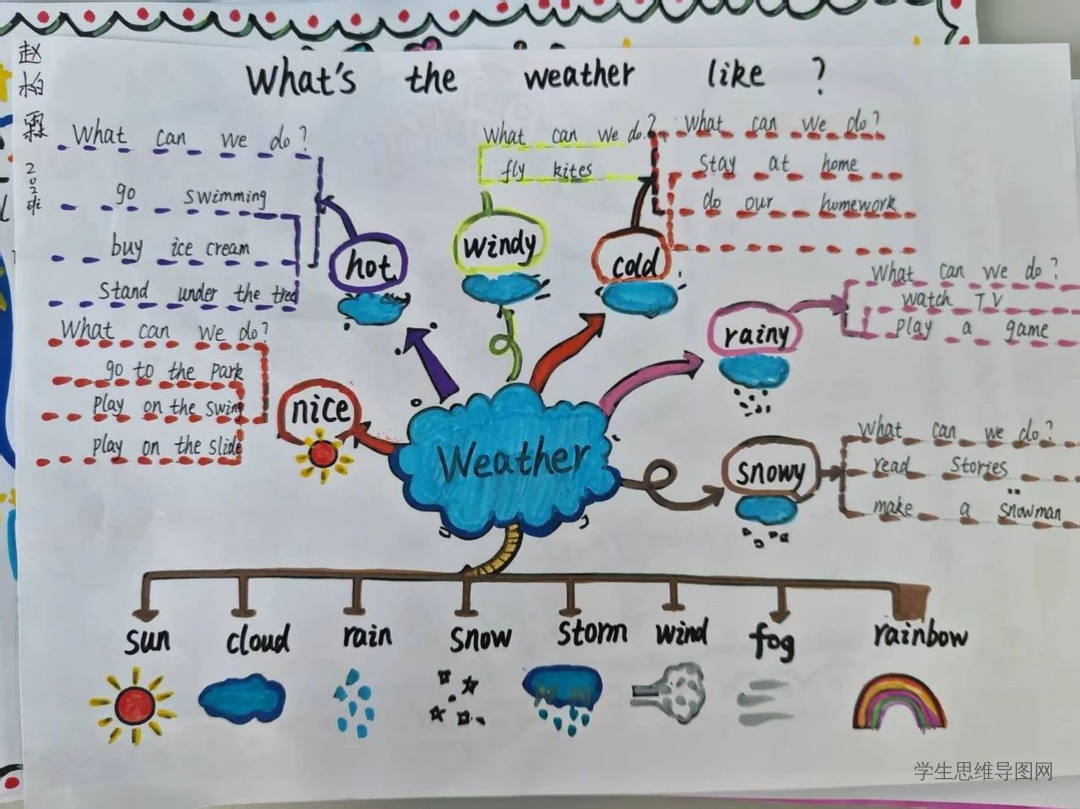 赵
柏
霖
What's the weather like ?
What can we do ?
go swimming
buy ice cream
Stand under the tree
hot
What can we do ?
fly kites
windy
What can we do ?
Stay at home
do our homework
cold
What can we do ?
watch TV
play a game
rainy
What can we do ?
go to the park
play on the swing
play on the slide
nice
Weather
What can we do ?
read Stories
make a snowman
snowy
sun cloud rain snow storm wind fog rainbow
学生思维导图网